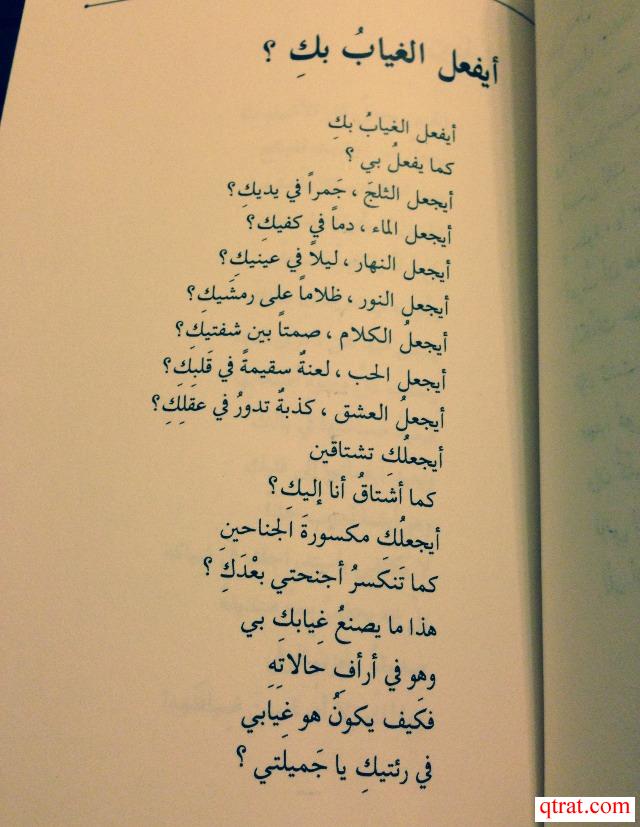 أيفعل الغيابُ بكِ ؟
أيفعل الغيابُ بكِ
كما يفعلُ بي ؟
أيجعل الثلجَ ، جَمراً في يديكِ؟
أيجعل الماء ، دماً في كفيكِ؟
أيجعل النهار ، ليلاً في عينيكِ؟
أيجعل النور ، ظلاماً على رمشَيكِ؟
أيجعلُ الكلام ، صمتاً بين شفتيكِ؟
أيجعل الحب ، لعنةٌ سقيمةً في قَلبِكِ؟
أيجعلُ العشق ، كذبةٌ تدورُ في عقلِكِ؟
أيجعلُكِ تشتاقين
كما أشتاقُ أنا إليكِ؟
أيجعلُك مكسورةَ الجناحينِ
كما تَنكَسرُ أجنحتي بعْدَكِ ؟
هذا ما يصنعُ غِيابكِ بي
وهو في أرأفِ حالاتِهِ
فكَيف يكونُ هو غِيابي
في رئتيكِ يا جَميلتي ؟
qtrat.com